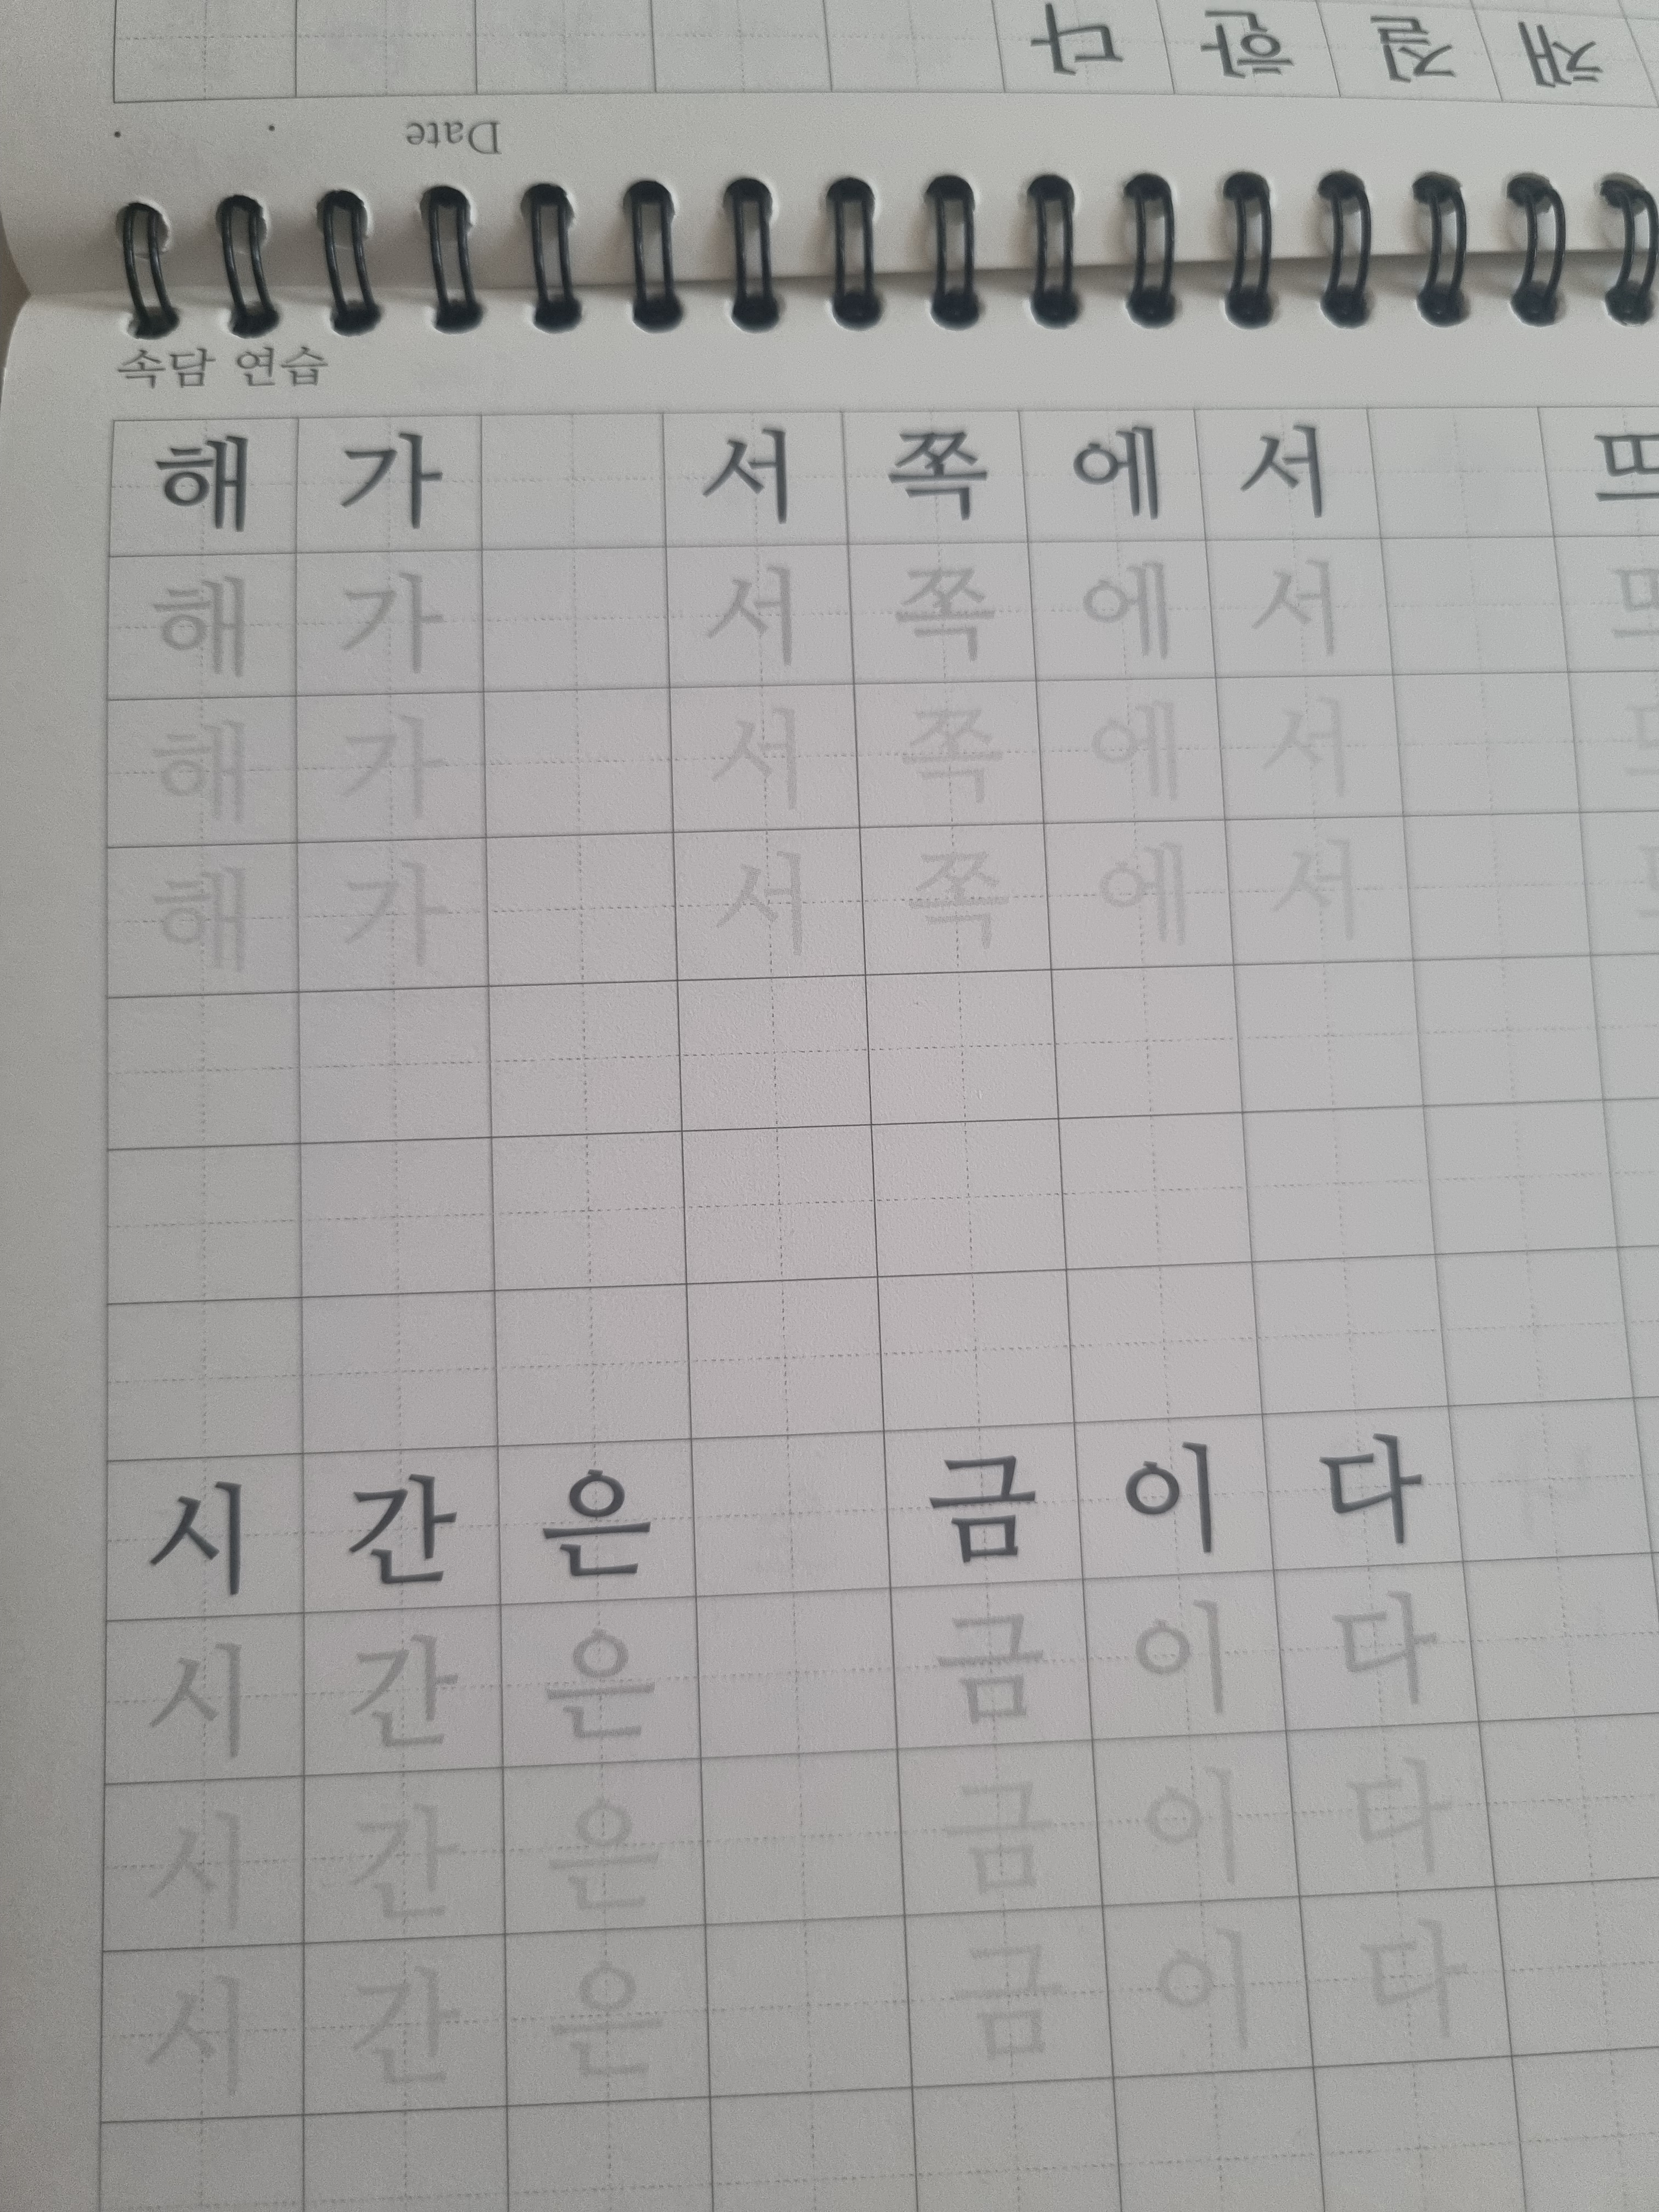 채질한다
Date
속담 연습
해가 서쪽에서 뜨
해가 서쪽에서
해가 서쪽에서
해가 서쪽에서
시간은 금이다
시간은 금이다
시간은 금이다
시간은 금이다